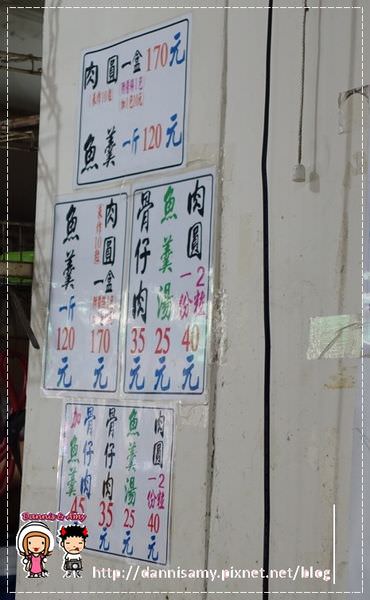 肉圓一盒170元
(未炸10粒)
魚羹一斤120元
肉圓一盒170元
未炸10粒
魚羹一斤120元
肉圓2粒一份40元
魚羹湯25元
骨仔肉35元
肉圓2粒一份40元
魚羹湯25元
骨仔肉35元
骨仔肉加魚羹45
Dannis & Amy
http://dannisamy.pixnet.net/blog